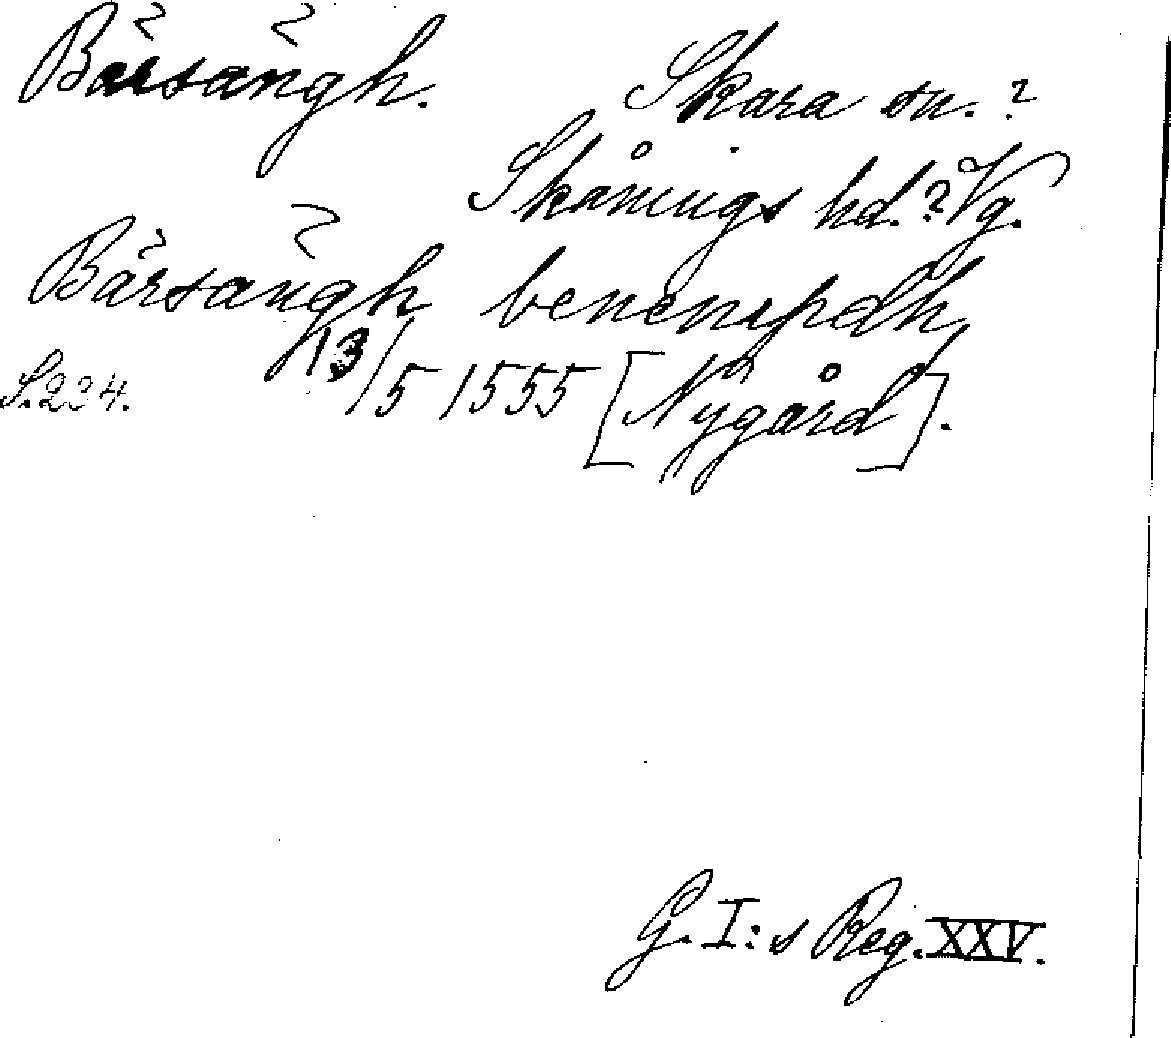 Bärsängh.
Skara sn.?
Skånings hd.? Vg.
Bärsängh benempdh,
S.234. 13/5 1555 [Nygård].
G. I:s Reg. XXV.